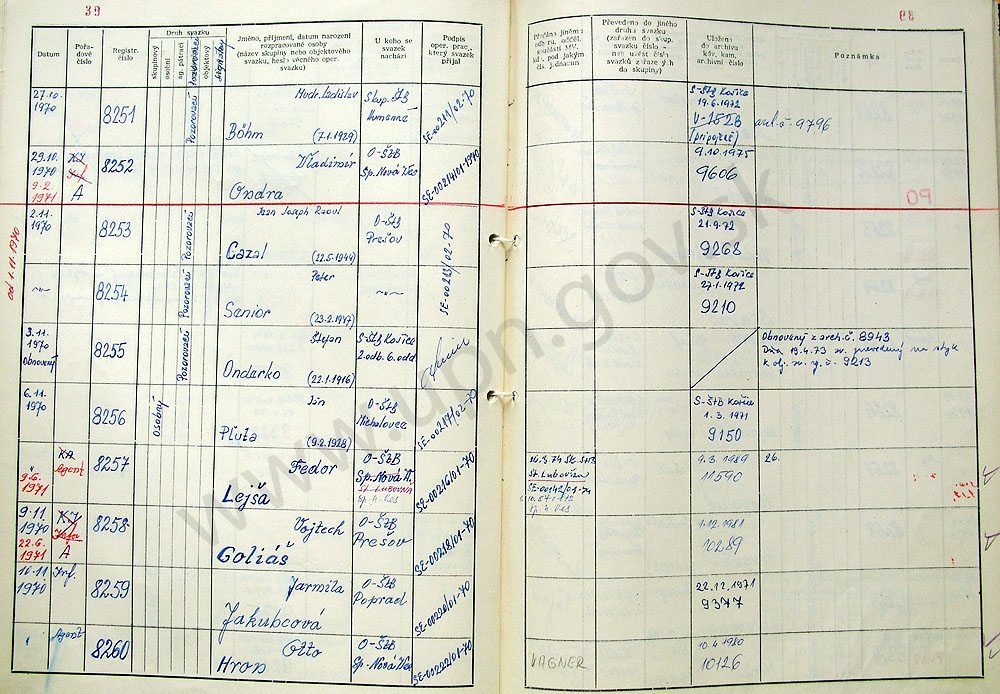 39
39
Datum
Pořa-
dové
číslo
Registr.
číslo
Druh svazku
skupinový
osobní
ag. pátrací
Pozorovací
objektový
Signální
Jméno, příjmení, datum narození
rozpracované osoby
(název skupiny nebo objektového
svazku, heslo věcného oper.
svazku)
U koho se
svazek
nachází
Podpis
oper. prac.,
který svazek
přijal
Převedeno do jiného
druhu svazku
(zařazen do skup.
svazku číslo -
Uloženo
do archivu
kdy, kam,
archivní číslo
Poznámka
27.10.
1970
8251
Pozorovací
Mudr. Ladislav
Böhm
(7.1.1929)
Skup. ŠtB
Humenné
SE-00211/02-70
S-ŠtB Košice
19.6.1972
V-152B
(pripojené)
arch.č. 9796
29.10.
1970
9.2.
1971
KJ
A
8252
Vladimír
Ondra
O-ŠtB
Sp. Nová Ves
SE-00214/01-1970
9.10.1975
9606
od 1.11.1970
2.11.
1970
8253
Pozorovací
Jean Joseph Raoul
Cazal
(22.5.1944)
O-ŠtB
Prešov
SE-00213/02-70
S-ŠtB Košice
21.9.72
9268
PO
-"-
8254
Pozorovací
Peter
Sanior
(23.2.1947)
-"-
S-ŠtB Košice
27.1.1972
9210
3.11.
1970
Obnovený
8255
Pozorovací
Štefan
Ondarko
(22.1.1916)
S-ŠtB Košice
2.odb. 6.odd.
Obnovený z arch.č. 8943
Dňa 19.4.73 sv. prevedený na styk
k obj. sv. rg. č. 9213
6.11.
1970
8256
Osobný
Ján
Pľuta
(9.2.1928)
O-ŠtB
Michalovce
SE-00217/02-70
S-ŠtB Košice
1.3.1971
9150
"
9.6.
1971
KA
Agent
8257
Fedor
Lejša
O-ŠtB
Sp. Nová V.
St. Lubovňa
Sp. N. Ves
SE-00216/01-70
16.3.74 Sk. ŠtB
St. Lubovňa
SE-00142/01-74
Sp. N. Ves
9.3.1989
11590
26.
9.11.
1970
22.6.
1971
KJ
A
8258
Vojtech
Goliáš
O-ŠtB
Prešov
SE-00218/01-70
1.12.1981
10289
10.11.
1970
Inf.
8259
Jarmila
Jakubcová
O-ŠtB
Poprad
SE-00220/01-70
22.12.1971
9377
"
Agent
8260
Otto
Hron
O-ŠtB
Sp. Nová Ves
SE-00222/01-70
VAGNER
10.4.1980
10126
www.upn.gov.sk